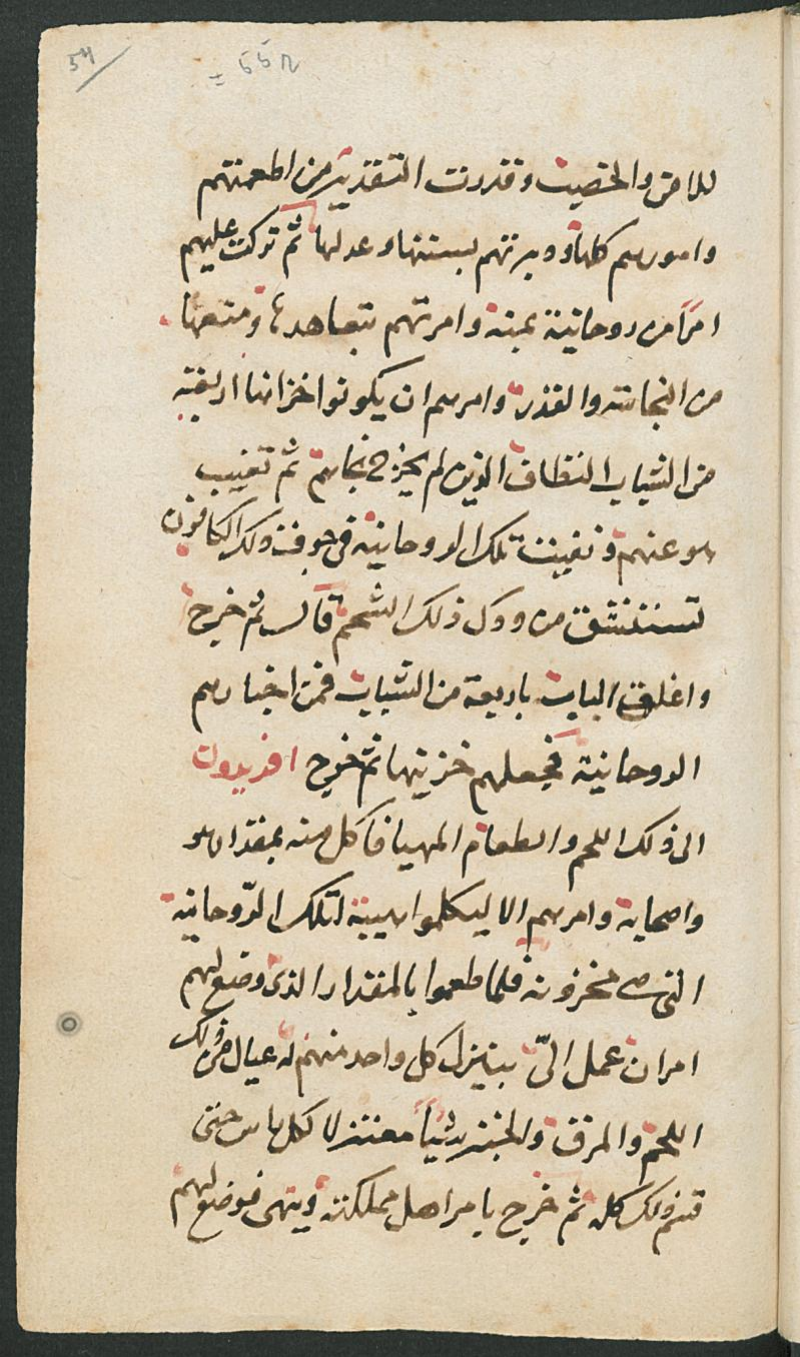 54 = 552
للامن والخصيب وقدرت التقدير من اطعمتهم
وامورهم كلها ودبرتهم بسنتها وعدلها ثم تركت عليهم
امرا من روحانية وامرتهم بتعاهدها ومنعها
من النجاسة والقذر وامرهم ان يكونوا خزانها اربعة
من الشباب النظاف الذين لم ثم تغيب
هو عنهم وتغيبت تلك الروحانية في جوف ذلك الكانون
تستنشق من ذلك الشحم قال ثم خرج
واغلق الباب باربعة من الشباب فمن اخبارهم
الروحانية فجعلهم خزينها ثم خرج افريدون
الى ذلك اللحم والطعام المهيا فاكل منه بمقدار هو
واصحابه وامرهم الا ليكلموا هيبة لتلك الروحانية
التي هي مخزونة فلما طعموا بالمقدار الذى وضع لهم
امر ان عمل الى منزل كل واحد منهم له عيال من ذلك
اللحم والمرق والخبز شيأ معتزلا لكل حتى
قسم ذلك كله ثم خرج يامر اهل مملكته فوضع لهم